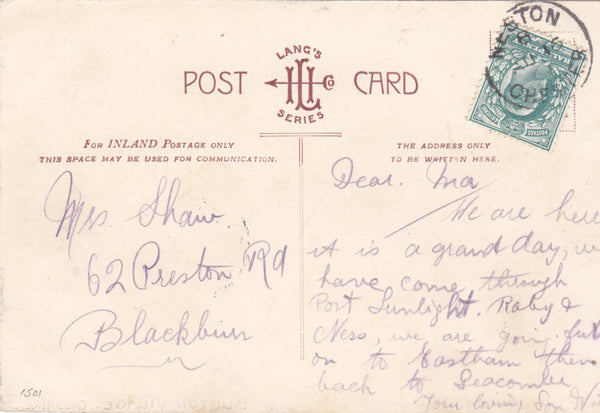 NESTON
CHES
LANG'S
POST CARD
HL Co
SERIES
FOR INLAND POSTAGE ONLY
THIS SPACE MAY BE USED FOR COMMUNICATION.
THE ADDRESS ONLY
TO BE WRITTEN HERE.
Mrs Shaw
62 Preston Rd
Blackburn
Dear. Ma
We are here
it is a grand day, we
have come through
Port Sunlight. Raby &
Ness, we are going
on to Eastham then
back to Seacombe
Your loving Son
1501
BURTON VILLAGE, CHESHIRE